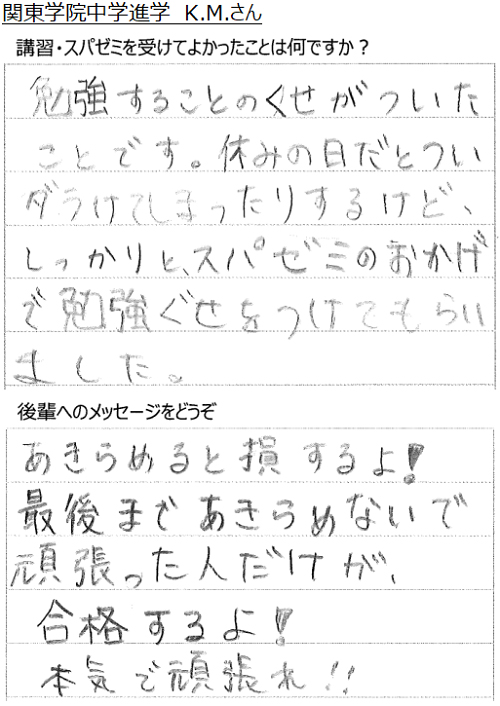 関東学院中学進学 K.M.さん
講習・スパゼミを受けてよかったことは何ですか？
勉強することのくせがついた
ことです。休みの日だとつい
ダラけてしまったりするけど、
しっかりと、スパゼミのおかげ
で勉強ぐせをつけてもらい
ました。
後輩へのメッセージをどうぞ
あきらめると損するよ!
最後まであきらめないで
頑張った人だけが、
合格するよ!
本気で頑張れ!!